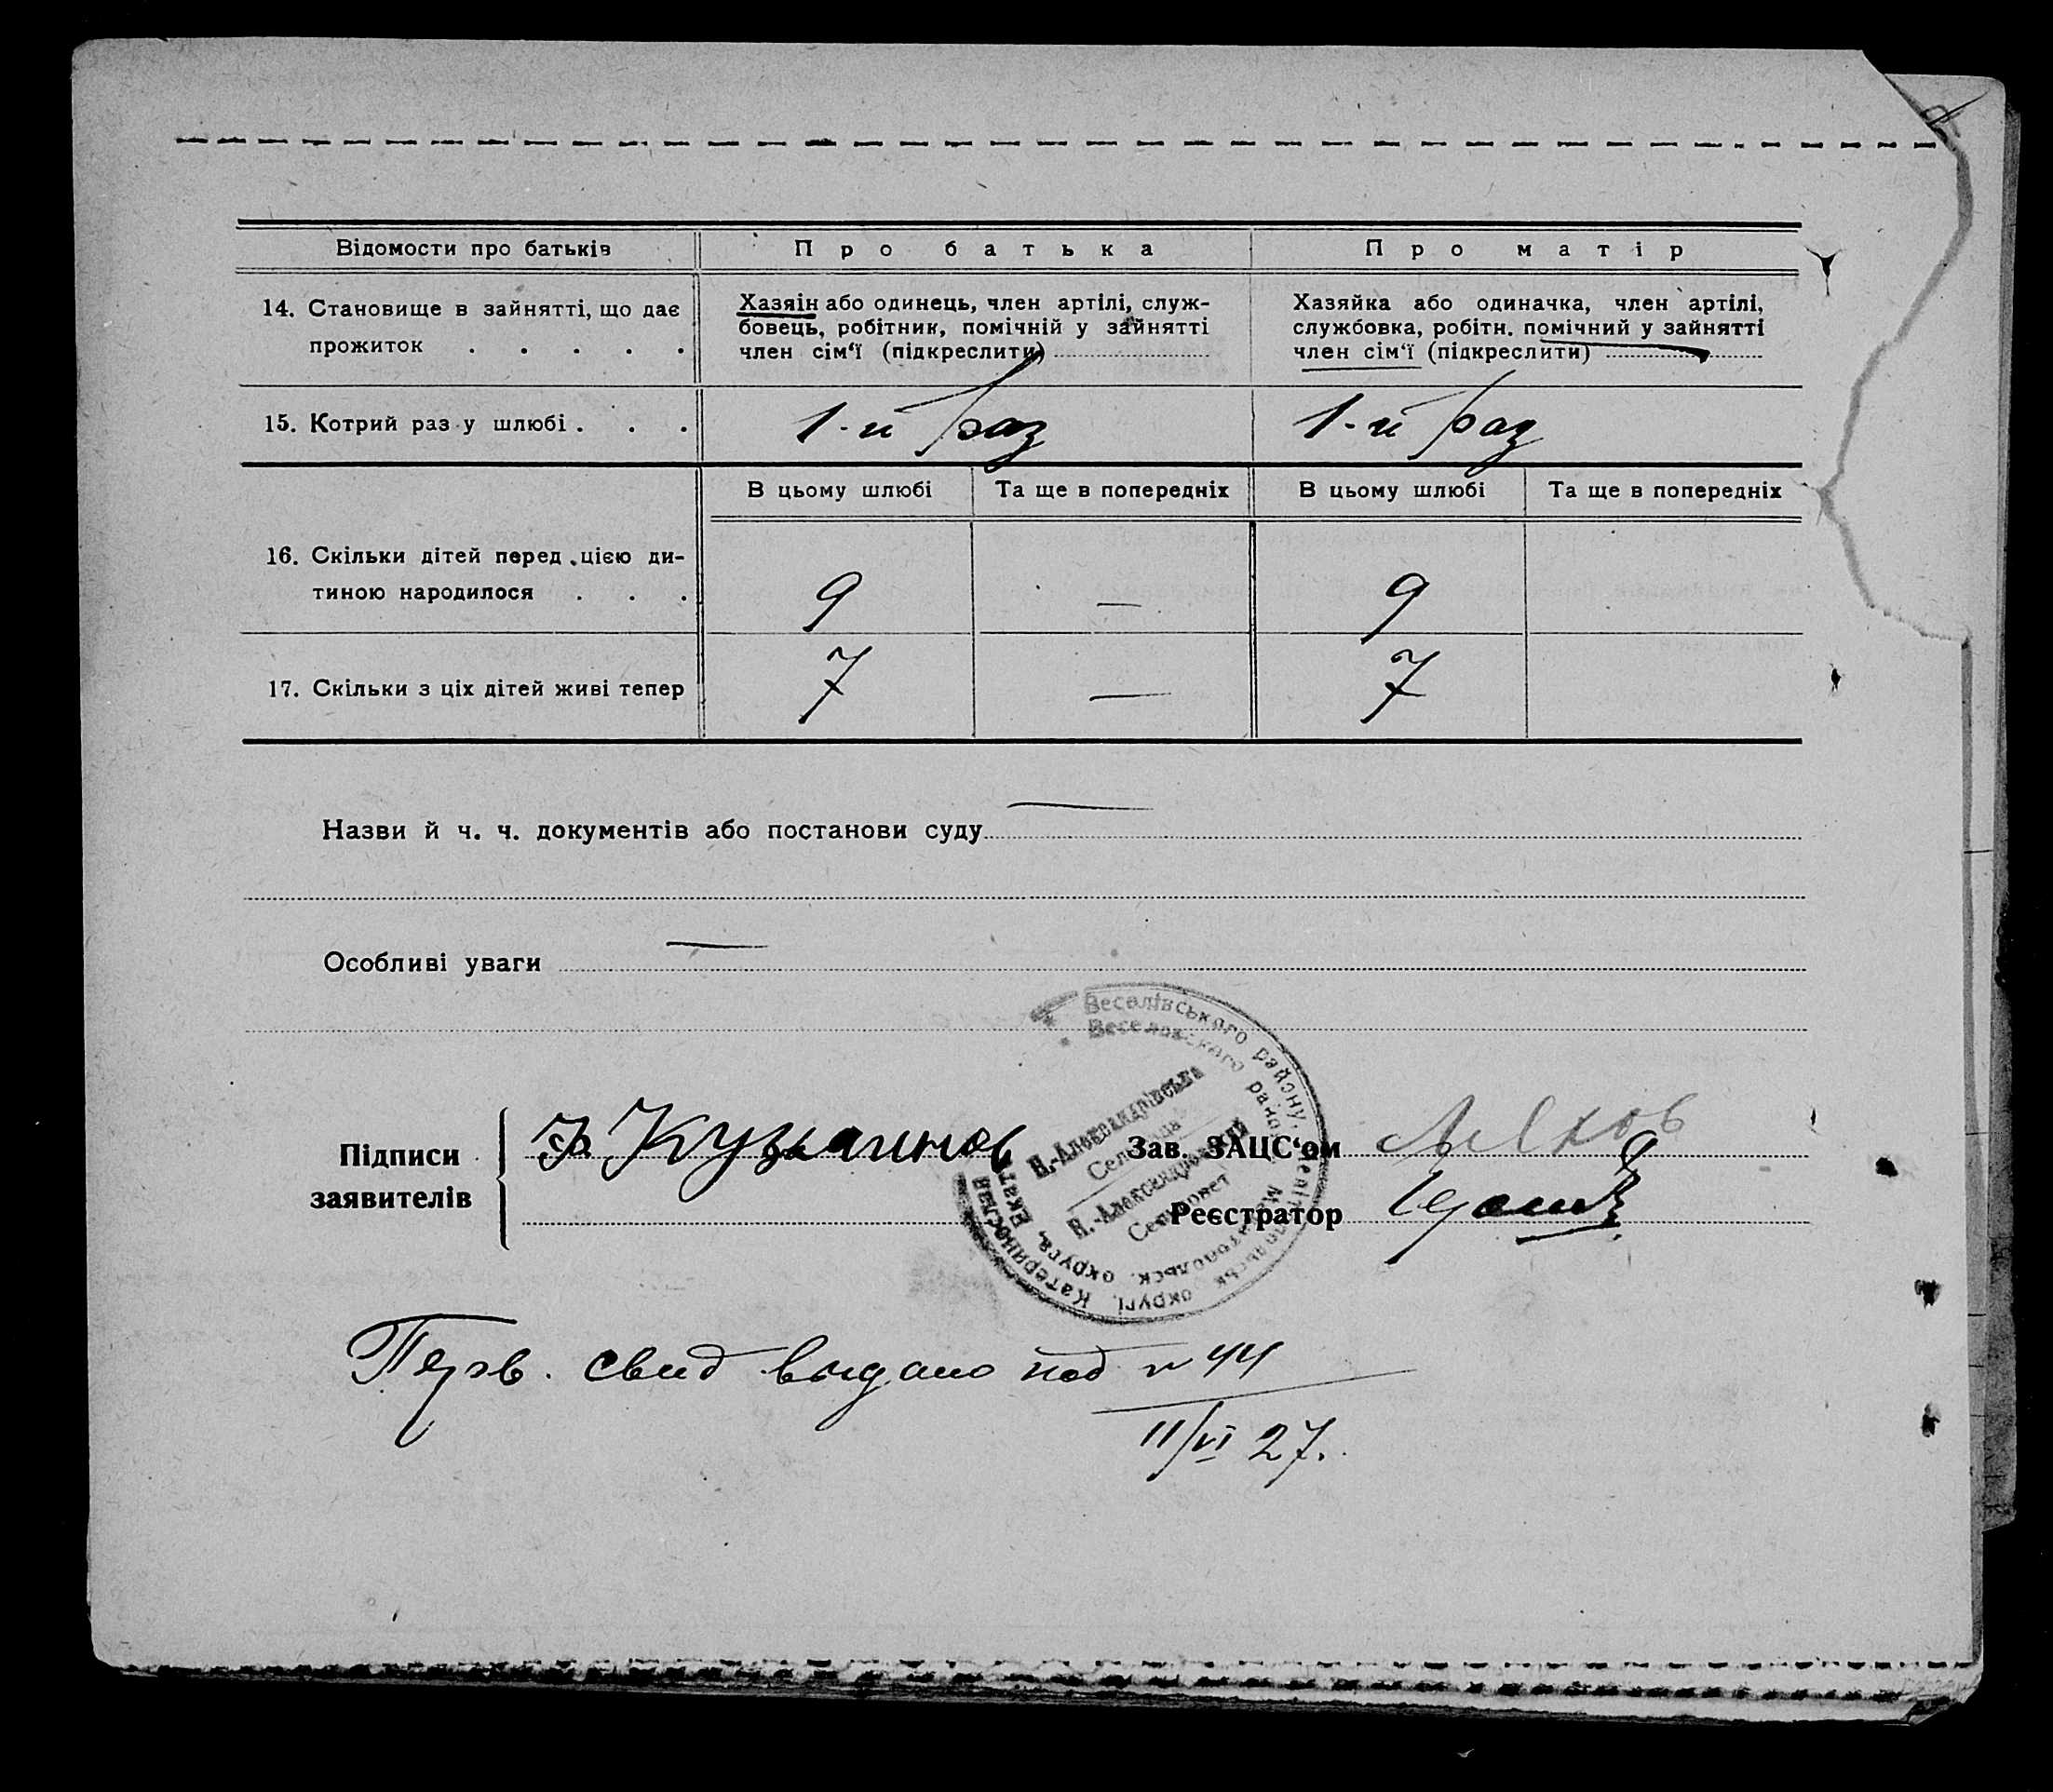 Відомости про батьків
Про батька
Про матір
14. Становище в зайнятті, що дає
прожиток . . . . .
Хазяін або одинець, член артілі, служ-
бовець, робітник, помічній у зайнятті
член сім‘ї (підкреслити)
Хазяйка або одиначка, член артілі,
службовка, робітн. помічний у зайнятті
член сім‘ї (підкреслити)
15. Котрий раз у шлюбі . . .
1-й раз
1-й раз
В цьому шлюбі
Та ще в попередніх
В цьому шлюбі
Та ще в попередніх
16. Скільки дітей перед цією ди-
тиною народилося . . .
9
—
9
17. Скільки з ціх дітей живі тепер
7
—
7
Назви й ч. ч. документів або постанови суду
—
Особливі уваги
—
Веселівського району,
Веселовского
Н.-Александрівська
Н.-Александровский
Сельсовет
округи, Катеринослав
округа, Екат
Підписи
заявителів
Кузьминов
Зав. ЗАЦС‘ом
Реєстратор
Перв. свид выдано под № 44
11/VI 27.